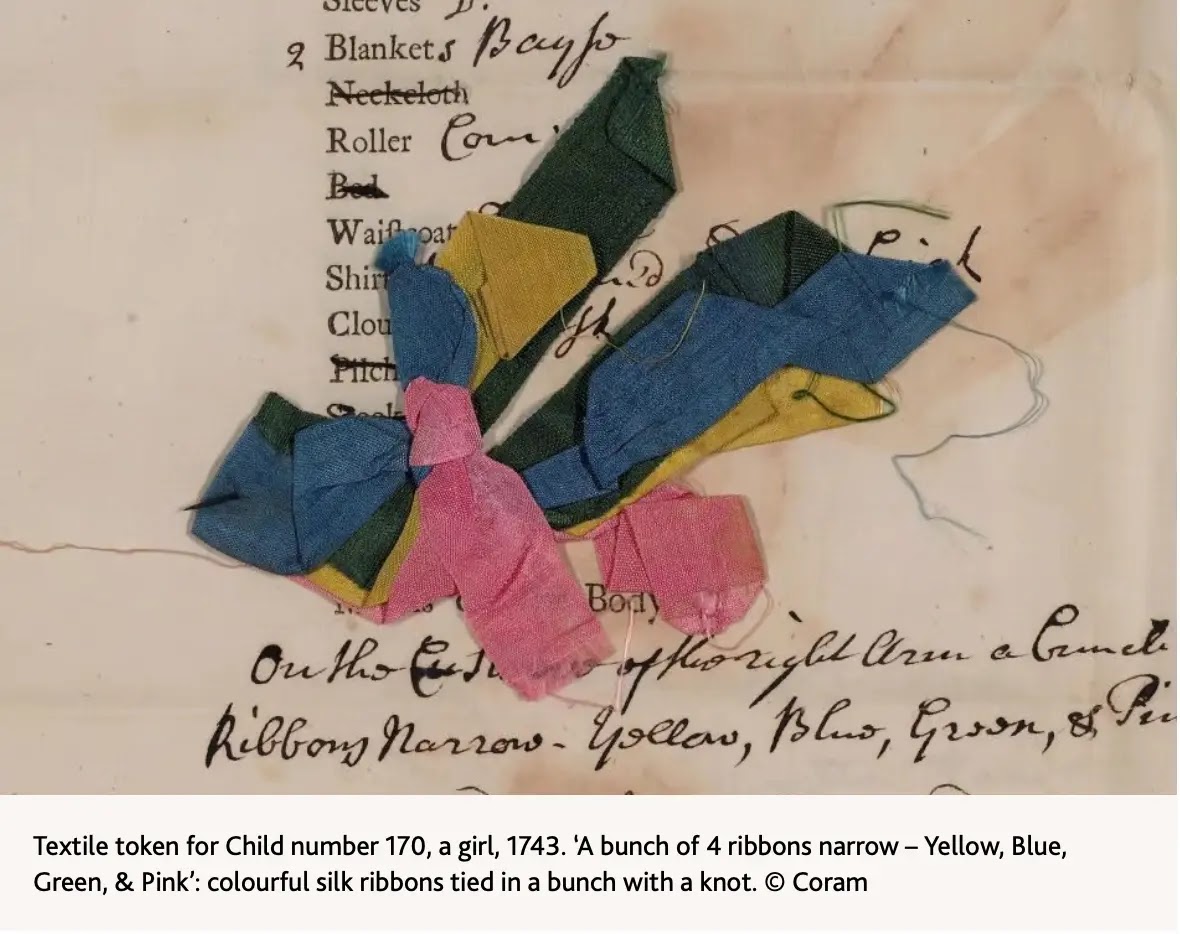 Sleeves D:
2 Blankets Bays
Neckcloth
Roller
Bed
Waiſtcoat
Shirt
Clou
Pilch
Body
On the of the right Arm a Bunch
Ribbons Narrow - Yellow, Blue, Green, & Pin
Textile token for Child number 170, a girl, 1743. ‘A bunch of 4 ribbons narrow – Yellow, Blue,
Green, & Pink’: colourful silk ribbons tied in a bunch with a knot. © Coram